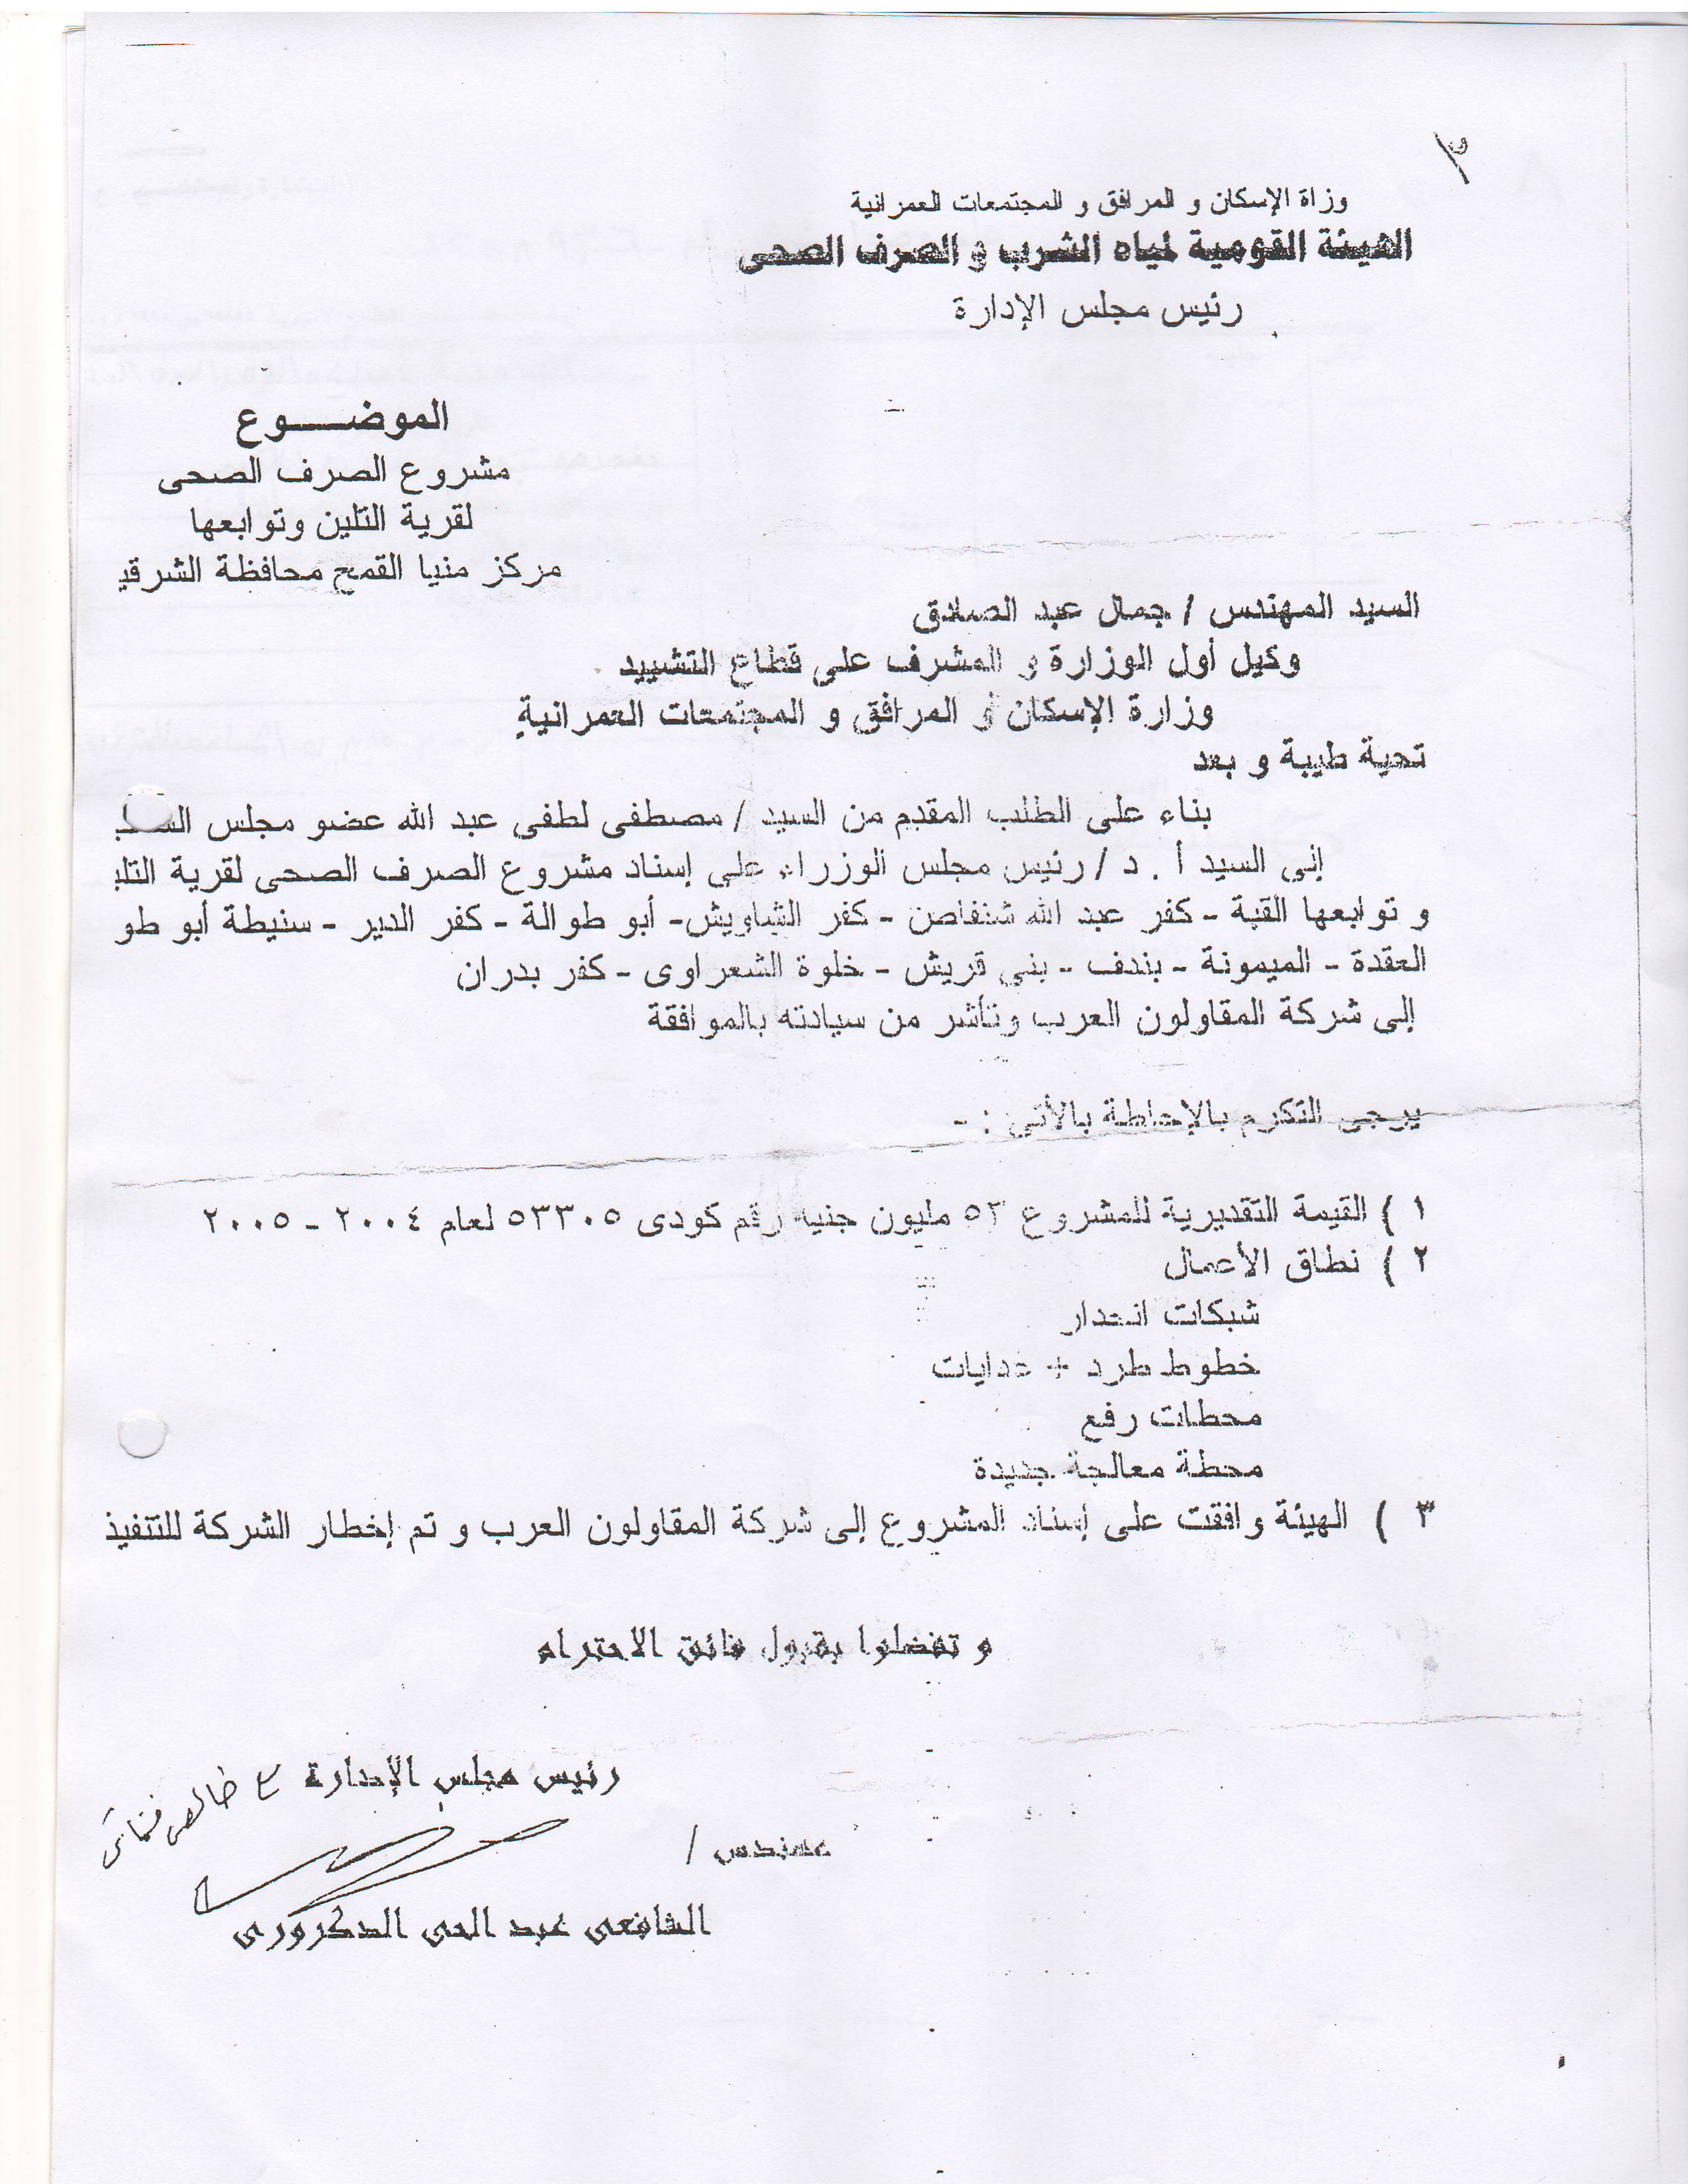 وزاة الإسكان و المرافق و المجتمعات العمرانية
الهيئة القومية لمياه الشرب و الصرف الصحى
رئيس مجلس الإدارة
الموضـــوع
مشروع الصرف الصحى
لقرية التلين وتوابعها
مركز منيا القمح محافظة الشرقي
السيد المهندس / جمال عبد الصادق
وكيل أول الوزارة و المشرف على قطاع التشييد
وزارة الإسكان و المرافق و المجتمعات العمرانية
تحية طيبة و بعد
بناء على الطلب المقدم من السيد / مصطفى لطفى عبد الله عضو مجلس
إلى السيد أ . د / رئيس مجلس الوزراء على إسناد مشروع الصرف الصحى لقرية التل
و توابعها القبة - كفر عبد الله شنفاص - كفر الشاويش- أبو طوالة - كفر الدير - سنيطة أبو طو
العقدة - الميمونة - بندف - بنى قريش - خلوة الشعراوى - كفر بدران
إلى شركة المقاولون العرب وتأشر من سيادته بالموافقة
يرجى التكرم بالإحاطة بالأتى : -
١ ) القيمة التقديرية للمشروع ٥٣ مليون جنيه رقم كودى ٥٣٣٠٥ لعام ٢٠٠٤ - ٢٠٠٥
٢ ) نطاق الأعمال
شبكات انحدار
خطوط طرد + عدايات
محطات رفع
محطة معالجة جديدة
٣ ) الهيئة وافقت على إسناد المشروع إلى شركة المقاولون العرب و تم إخطار الشركة للتنفيذ
و تفضلوا بقبول فائق الاحترام
رئيس مجلس الإدارة
مهندس /
الشافعى عبد الحى الدكرورى